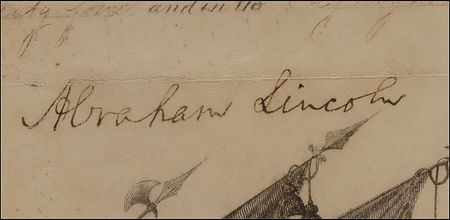 and in the
Abraham Lincoln